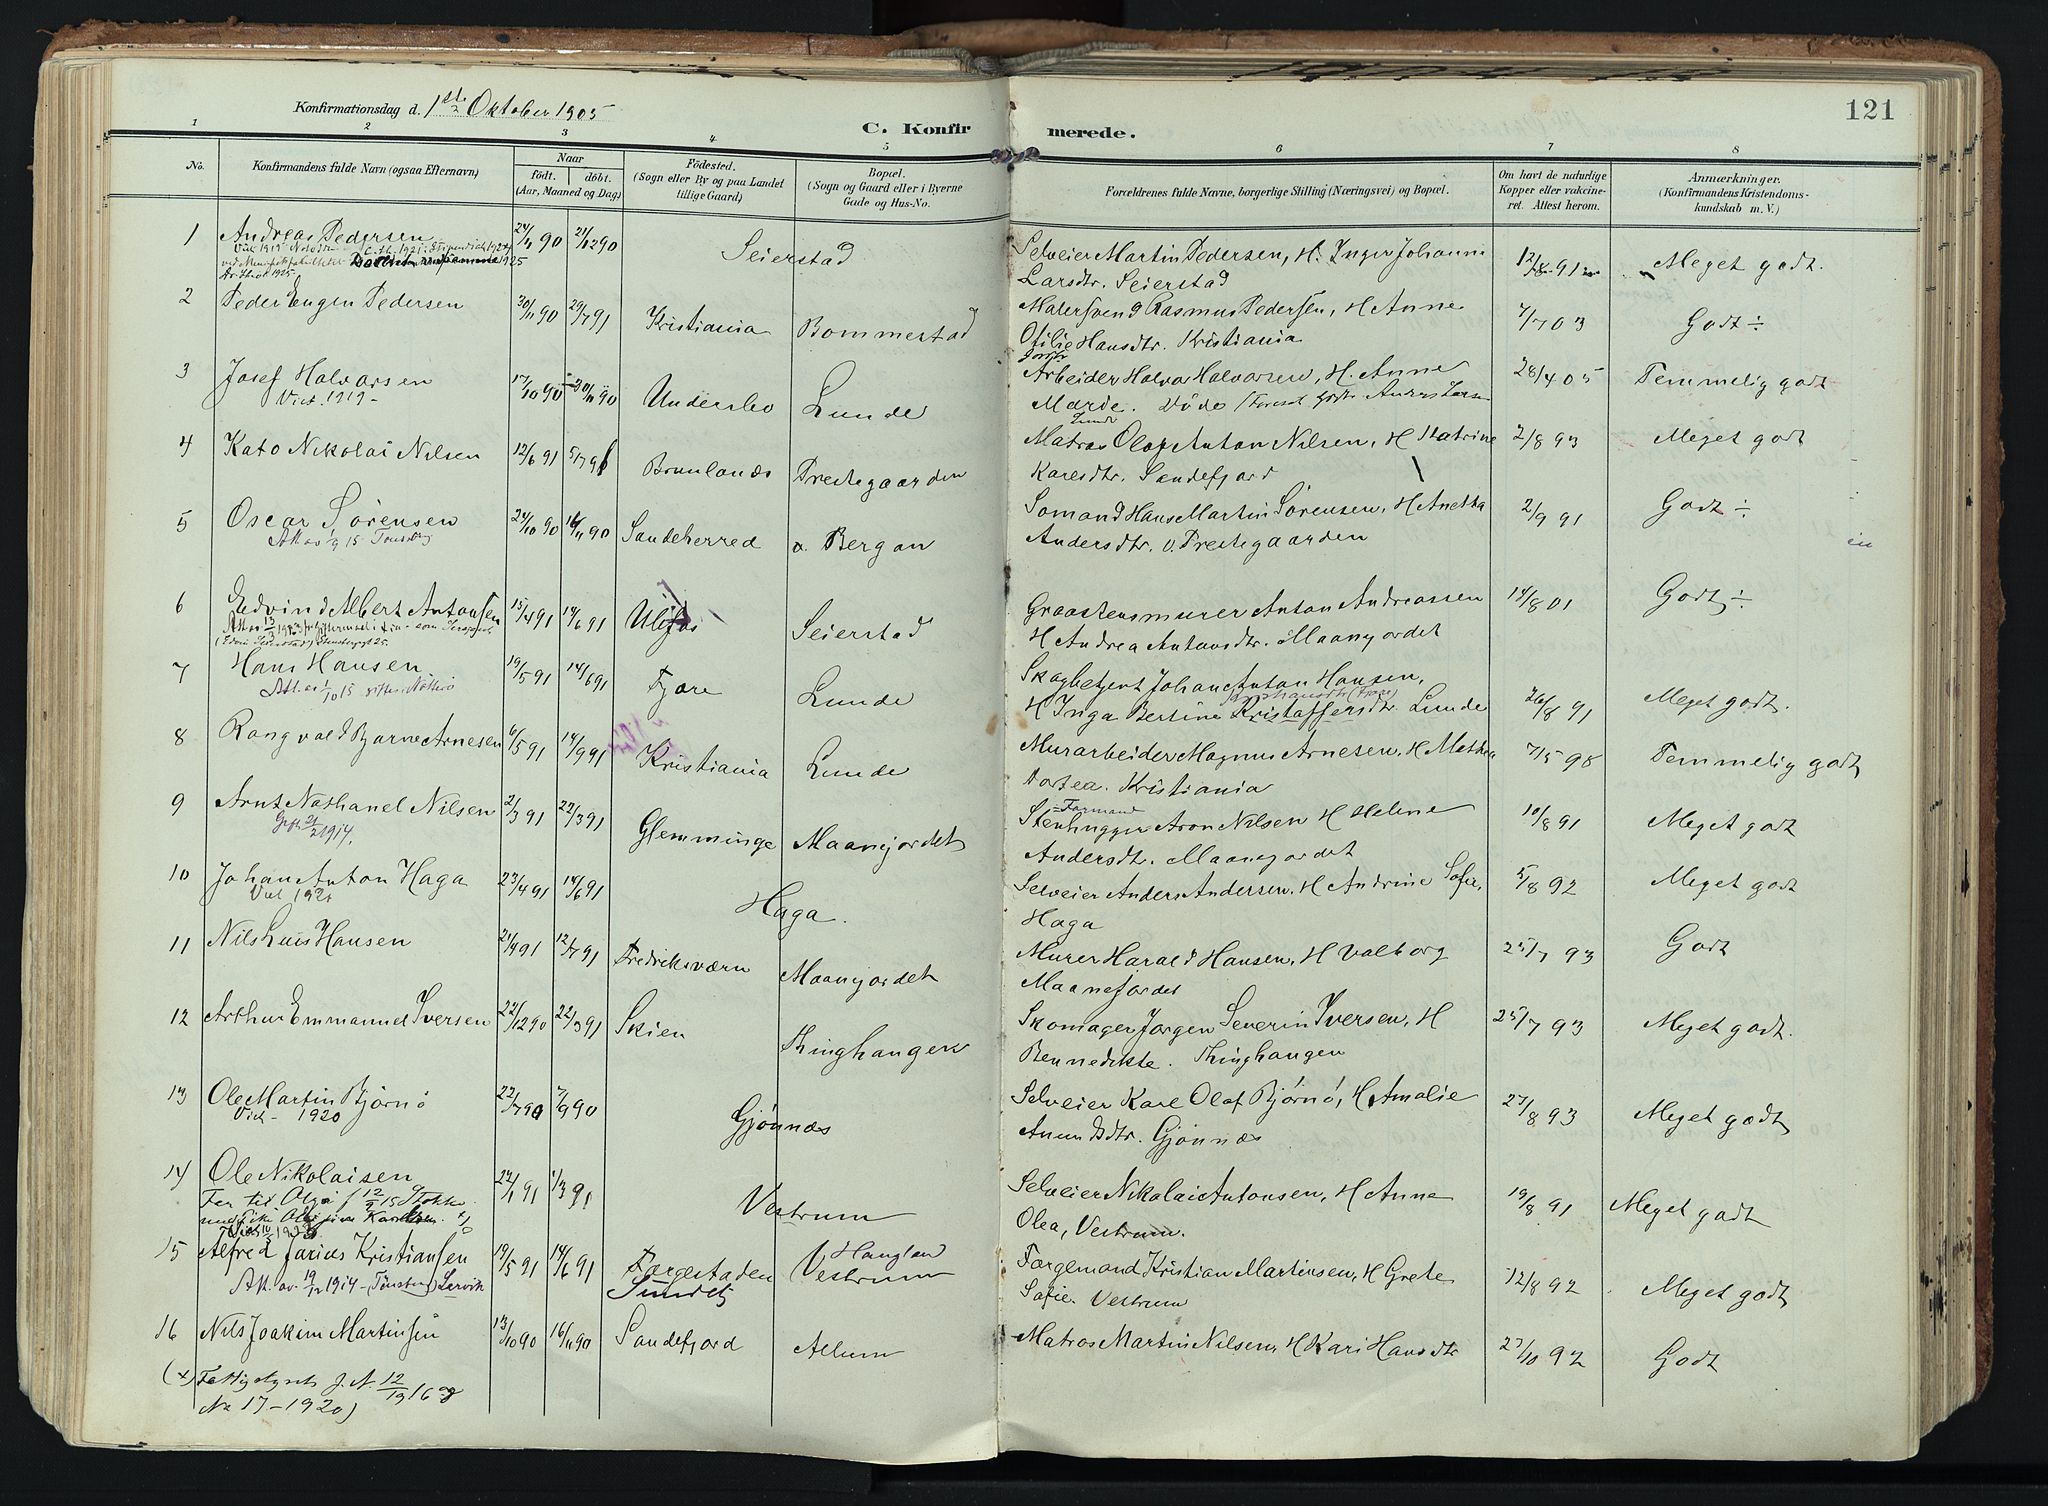 121
Konfirmationsdag d. 1ste Oktober 1905
C. Konfir merede.
1 2 3 4 5 6 7 8
No. Konfirmandens fulde Navn (ogsaa Efternavn) Naar födt. döbt. (Aar, Maaned og Dag) Födested. (Sogn eller By og paa Landet tillige Gaard) Bopæl. (Sogn og Gaard eller i Byerne Gade og Hus-No. Forældrenes fulde Navne, borgerlige Stilling (Næringsvei) og Bopæl. Om havt de naturlige Kopper eller vakcineret. Attest herom. Anmærkninger. (Konfirmandens Kristendomskundskab m. V.)
1 Andreas Pedersen 24/11 90 21/12 90 Seierstad Selveier Martin Pedersen, H. Inger Johanne 12/8 91 Meget godt.
Larsdtr. Seierstad
2 Peder Eugen Pedersen 30/11 90 29/7 91 Kristiania Bommestad Malersvend Rasmus Pedersen, H Anne 7/7 03 Godt ÷
Otilie Hansdtr. Kristiania
3 Josef Halvorsen 17/10 90 30/11 90 Undersbo Lunde Arbeider Halvor Halvorsen, H. Anne 28/4 05 Temmelig godt
Vict. 1919 -
Marde. Döde
4 Kato Nikolai Nilsen 12/6 91 5/7 91 Brunlanæs Prestegaarden Matros Olaf Anton Nilsen, H Katrine 2/8 93 Meget godt
Karlsdtr. Sandefjord
5 Oscar Sørensen 24/10 90 16/11 90 Sandeherred o. Bergan Sömand Hans Martin Sørensen, H Anetha 2/9 91 Godt ÷
Andersdtr. o. Prestegaarden
6 Edvind Albert Antonsen 15/4 91 14/6 91 Ulefos Seierstad Graastensmurer Anton Andreassen 14/8 01 Godt ÷
H Andrea Antonsdtr. Maanejordet
7 Hans Hansen 19/5 91 14/6 91 Fjære Lunde Skogbetjent Johan Anton Hansen, 26/8 91 Meget godt.
H Inga Bertine Kristaffersdtr. Lunde
8 Rangvald Bjarne Arnesen 6/5 91 14/9 91 Kristiania Lunde Murarbeider Magnus Arnesen, H Mathea 7/5 98 Temmelig godt
Dortea. Kristiania
9 Arnt Nathanel Nilsen 2/3 91 22/3 91 Glemminge Maanejordet Stenhugger Formand Aron Nilsen H Heline 10/8 91 Meget godt
Gift 21/2 1914.
Andersdtr. Maanejordet
10 Johan Anton Haga 23/4 91 14/6 91 Haga. Selveier Anders Andersen, H Andrine Sofie, 5/8 92 Meget godt
Haga
11 Nils Luis Hansen 21/4 91 12/7 91 Fredriksværn Maanejordet Murer Harald Hansen, H Valborg 25/7 93 Godt
Maanejordet
12 Arthur Emmanuel Iversen 22/12 90 22/3 91 Skien Thinghaugen Skomager Jørgen Severin Iversen, H 25/7 93 Meget godt.
Bennedikte. Thinghaugen
13 Ole Martin Bjørnø 22/7 90 7/9 90 Gjønnæs Selveier Karl Olaf Bjørnø, H Amalie 27/8 93 Meget godt
Vict - 1920
Amundsdtr. Gjønnæs
14 Ole Nikolaisen 24/1 91 1/3 91 Vestrum Selveier Nikolai Antonsen, H Anne 19/8 91 Meget godt
Olea, Vestrum.
15 Alfred Jarius Kristiansen 19/5 91 14/6 91 Forgestaden Vestrum Haugland Forgemand Kristian Martinsen, H Grete 12/8 92 Meget godt
Sofie. Vestrum
16 Nils Joakim Martinsen 13/10 90 16/11 90 Sandefjord Allum Matros Martin Nilsen, H Kari Hansdtr 27/10 92 Godt
No 17 - 1920)